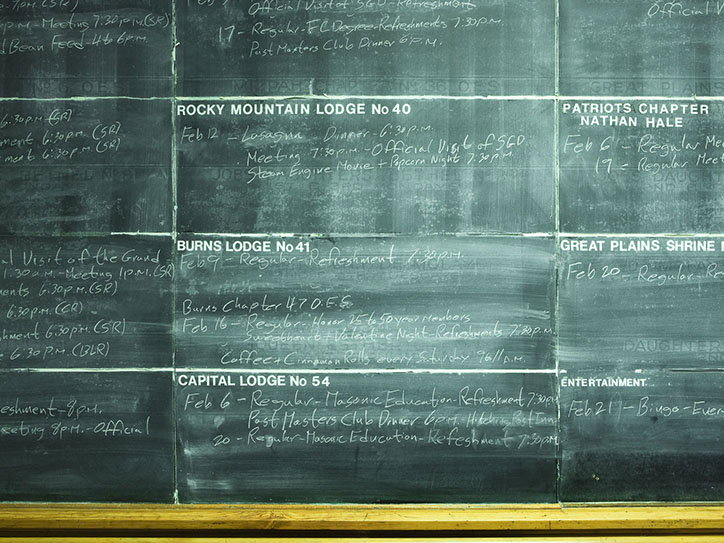 Official Visit of SGD-Refreshment
17 - Regular-EC Degree-Refreshments 7:30 p.m.
Past Masters Club Dinner 6 P.M.
Official V
- Meeting 7:30 p.m. (SR)
Bean Feed-4 to 6 p.m.
6:30 p.m. (SR)
ment 6:30 p.m. (SR)
ment 6:30 p.m. (SR)
ROCKY MOUNTAIN LODGE No 40
Feb 12 - Lasagna - Dinner-6:30 p.m.
Meeting 7:30 p.m.-Official Visit of SGD
Steam Engine Movie + Popcorn Night 7:30 p.m.
PATRIOTS CHAPTER
NATHAN HALE
Feb 6 - Regular Mee
17 - Regular Meet
al Visit of the Grand
11:30 a.m.-Meeting 1 p.m. (SR)
ments 6:30 p.m. (SR)
6:30 p.m. (CR)
shment 6:30 p.m. (SR)
6:30 p.m. (BLR)
BURNS LODGE No 41
Feb 9 - Regular-Refreshment 7:30 p.m.
Burns Chapter 47 O.E.S
Feb 16 - Regular-Honor 25 to 50 year members
Sweetheart + Valentine Night-Refreshments 7:30 p.m.
Coffee + Cinnamon Rolls every Saturday
GREAT PLAINS SHRINE
Feb 20 - Regular-Re
eshment-8 p.m.
eeting 8 p.m.-Official
CAPITAL LODGE No 54
Feb 6 - Regular-Masonic Education-Refreshment 7:30 p.m.
Past Masters Club Dinner 6 p.m. Hitching Post Inn
20 - Regular-Masonic Education-Refreshment 7:30 p.m.
ENTERTAINMENT
Feb 21 - Bingo-Ever